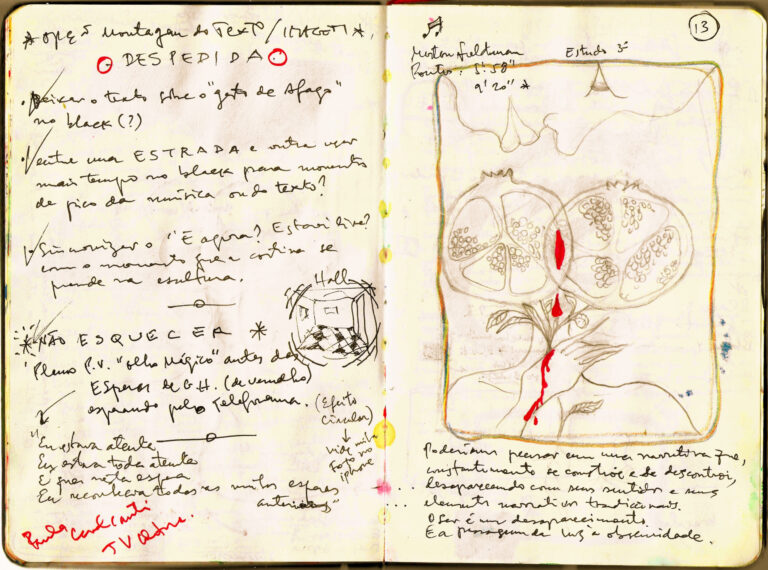 * OPÇÕ Montagem do TEXTO / 
DESPEDIDA
Deixar o texto sobre o "gesto de Afago"
no black (?)
entre uma ESTRADA e outra usar
mais tempo no black para momentos
de pico da música ou do texto?
Sincronizar o "E agora? Estarei livre?
com o momento que a cortina se
prende na escultura.
Hall
* NÃO ESQUECER *
Plano P.V. "olho mágico" antes das
Esperas de G.H. (de vermelho)
esperando pelo telefonema.
(Efeito
circular)
↓
vide minha
foto no
iphone
"Eu estava atenta
Eu estava toda atenta
E que nesta espera
Eu reconhecia todas as minhas esperas
anteriores"
Paula
Cavalcanti
TV
13
Morton Feldman
Pontos: 5'.58"
9'20" *
Estudo 3
Poderíamos pensar em uma narrativa que,
constantemente se constrói e se desconstrói,
... desaparecendo com seus sentidos e seus
... elementos narrativos tradicionais.
O Ser é um desaparecimento.
E a passagem da luz a obscuridade.